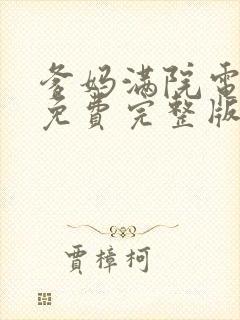 爸妈满院電
免費完整版
賈樟柯